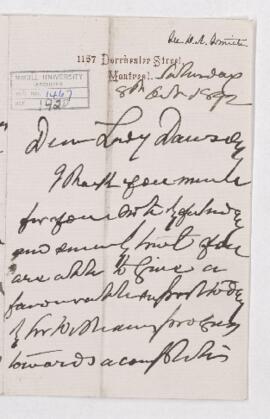 1157 Dorchester Street
Montreal. Saturday
8th Oct 1892
McGILL UNIVERSITY
ARCHIVES
ACC. NO. 1467
REF.
Dear Lady Dawson,
I thank you much
for your note of
and trust you
are able to give a
favourable report today
of Sir William's progress
towards a complete